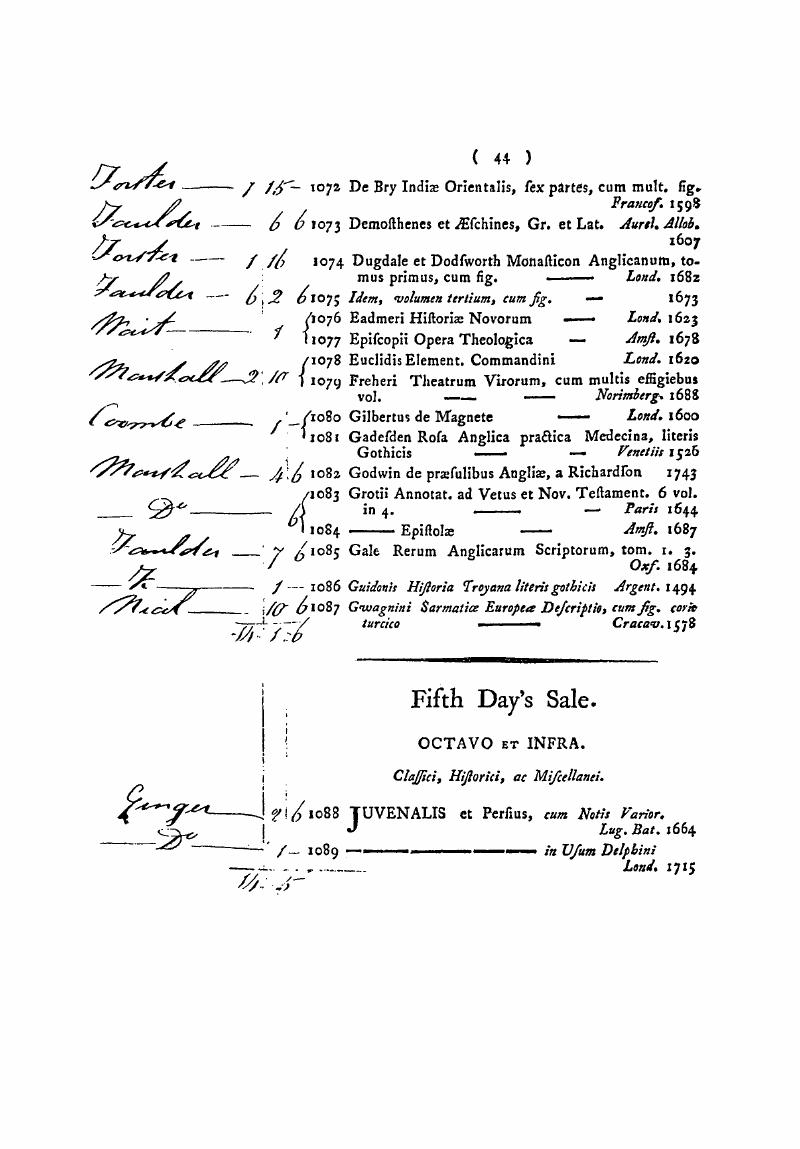 ( 44 )
Forster — 1 15 – 1072 De Bry Indiæ Orientalis, ſex partes, cum mult. fig.
Francof. 1598
Faulder — 6 6 1073 Demoſthenes et Æſchines, Gr. et Lat. Aurel. Allob.
1607
Forster — 1 16 1074 Dugdale et Dodſworth Monaſticon Anglicanum, to-
mus primus, cum fig. — Lond. 1682
Faulder — 6 2 6 1075 Idem, volumen tertium, cum fig. — 1673
Wait — 1 {1076 Eadmeri Hiſtoriæ Novorum — Lond. 1623
1077 Epiſcopii Opera Theologica — Amſt. 1678
Marshall — 2 10 {1078 Euclidis Element. Commandini Lond. 1620
1079 Freheri Theatrum Virorum, cum multis effigiebus
vol. — — Norimberg. 1688
Coombe — 1 – {1080 Gilbertus de Magnete — Lond. 1600
1081 Gadeſden Roſa Anglica practica Medecina, literis
Gothicis — — Venetiis 1526
Marshall — 4 6 1082 Godwin de præſulibus Angliæ, a Richardſon 1743
— Do — 6 {1083 Grotii Annotat. ad Vetus et Nov. Teſtament. 6 vol.
in 4. — — Paris 1644
1084 — Epiſtolæ — Amſt. 1687
Faulder — 7 6 1085 Gale Rerum Anglicarum Scriptorum, tom. 1. 3.
Oxf. 1684
— 1 – 1086 Guidonis Hiſtoria Troyana literis gothicis Argent. 1494
Nicol — 10 6 1087 Gwagnini Sarmatiæ Europeæ Deſcriptio, cum fig. corio
turcico — Cracav. 1578
14 1 6
Fifth Day's Sale.
OCTAVO ET INFRA.
Claſſici, Hiſtorici, ac Miſcellanei.
Ginger — 2 6 1088 JUVENALIS et Perſius, cum Notis Varior.
Lug. Bat. 1664
— Do — 1 – 1089 — in Uſum Delphini
Lond. 1715
14 5